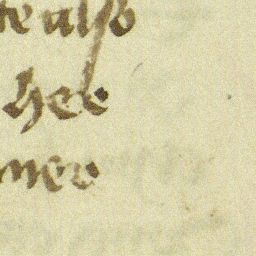 te also
hee
mer